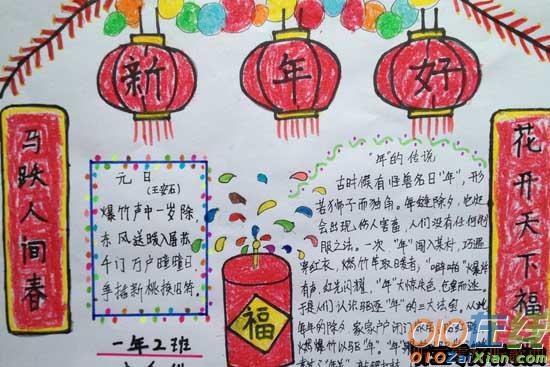 新年好
马跃人间春
花开天下福
元日
(王安石)
爆竹声中一岁除
东风送暖入屠苏
千门万户曈曈日
新桃换旧符.
一年2班
福
"年"的传说
古时候有怪兽名曰"年",形
若狮子而独角。年逢除夕,
会出现伤人害畜,人们没有任何制
服之法。一次"年"闯入某村,巧遇
穿红衣,燃竹竿取暖者,"噼啪"爆炸
有声,红光闪耀,"年"大惊失色,仓皇而逃。
于是人们认识驱逐"年"的三大法宝,从此
年年的除夕家家户户闭门
燃爆竹以驱"年"。"年"
在线
oioZaiXian.com